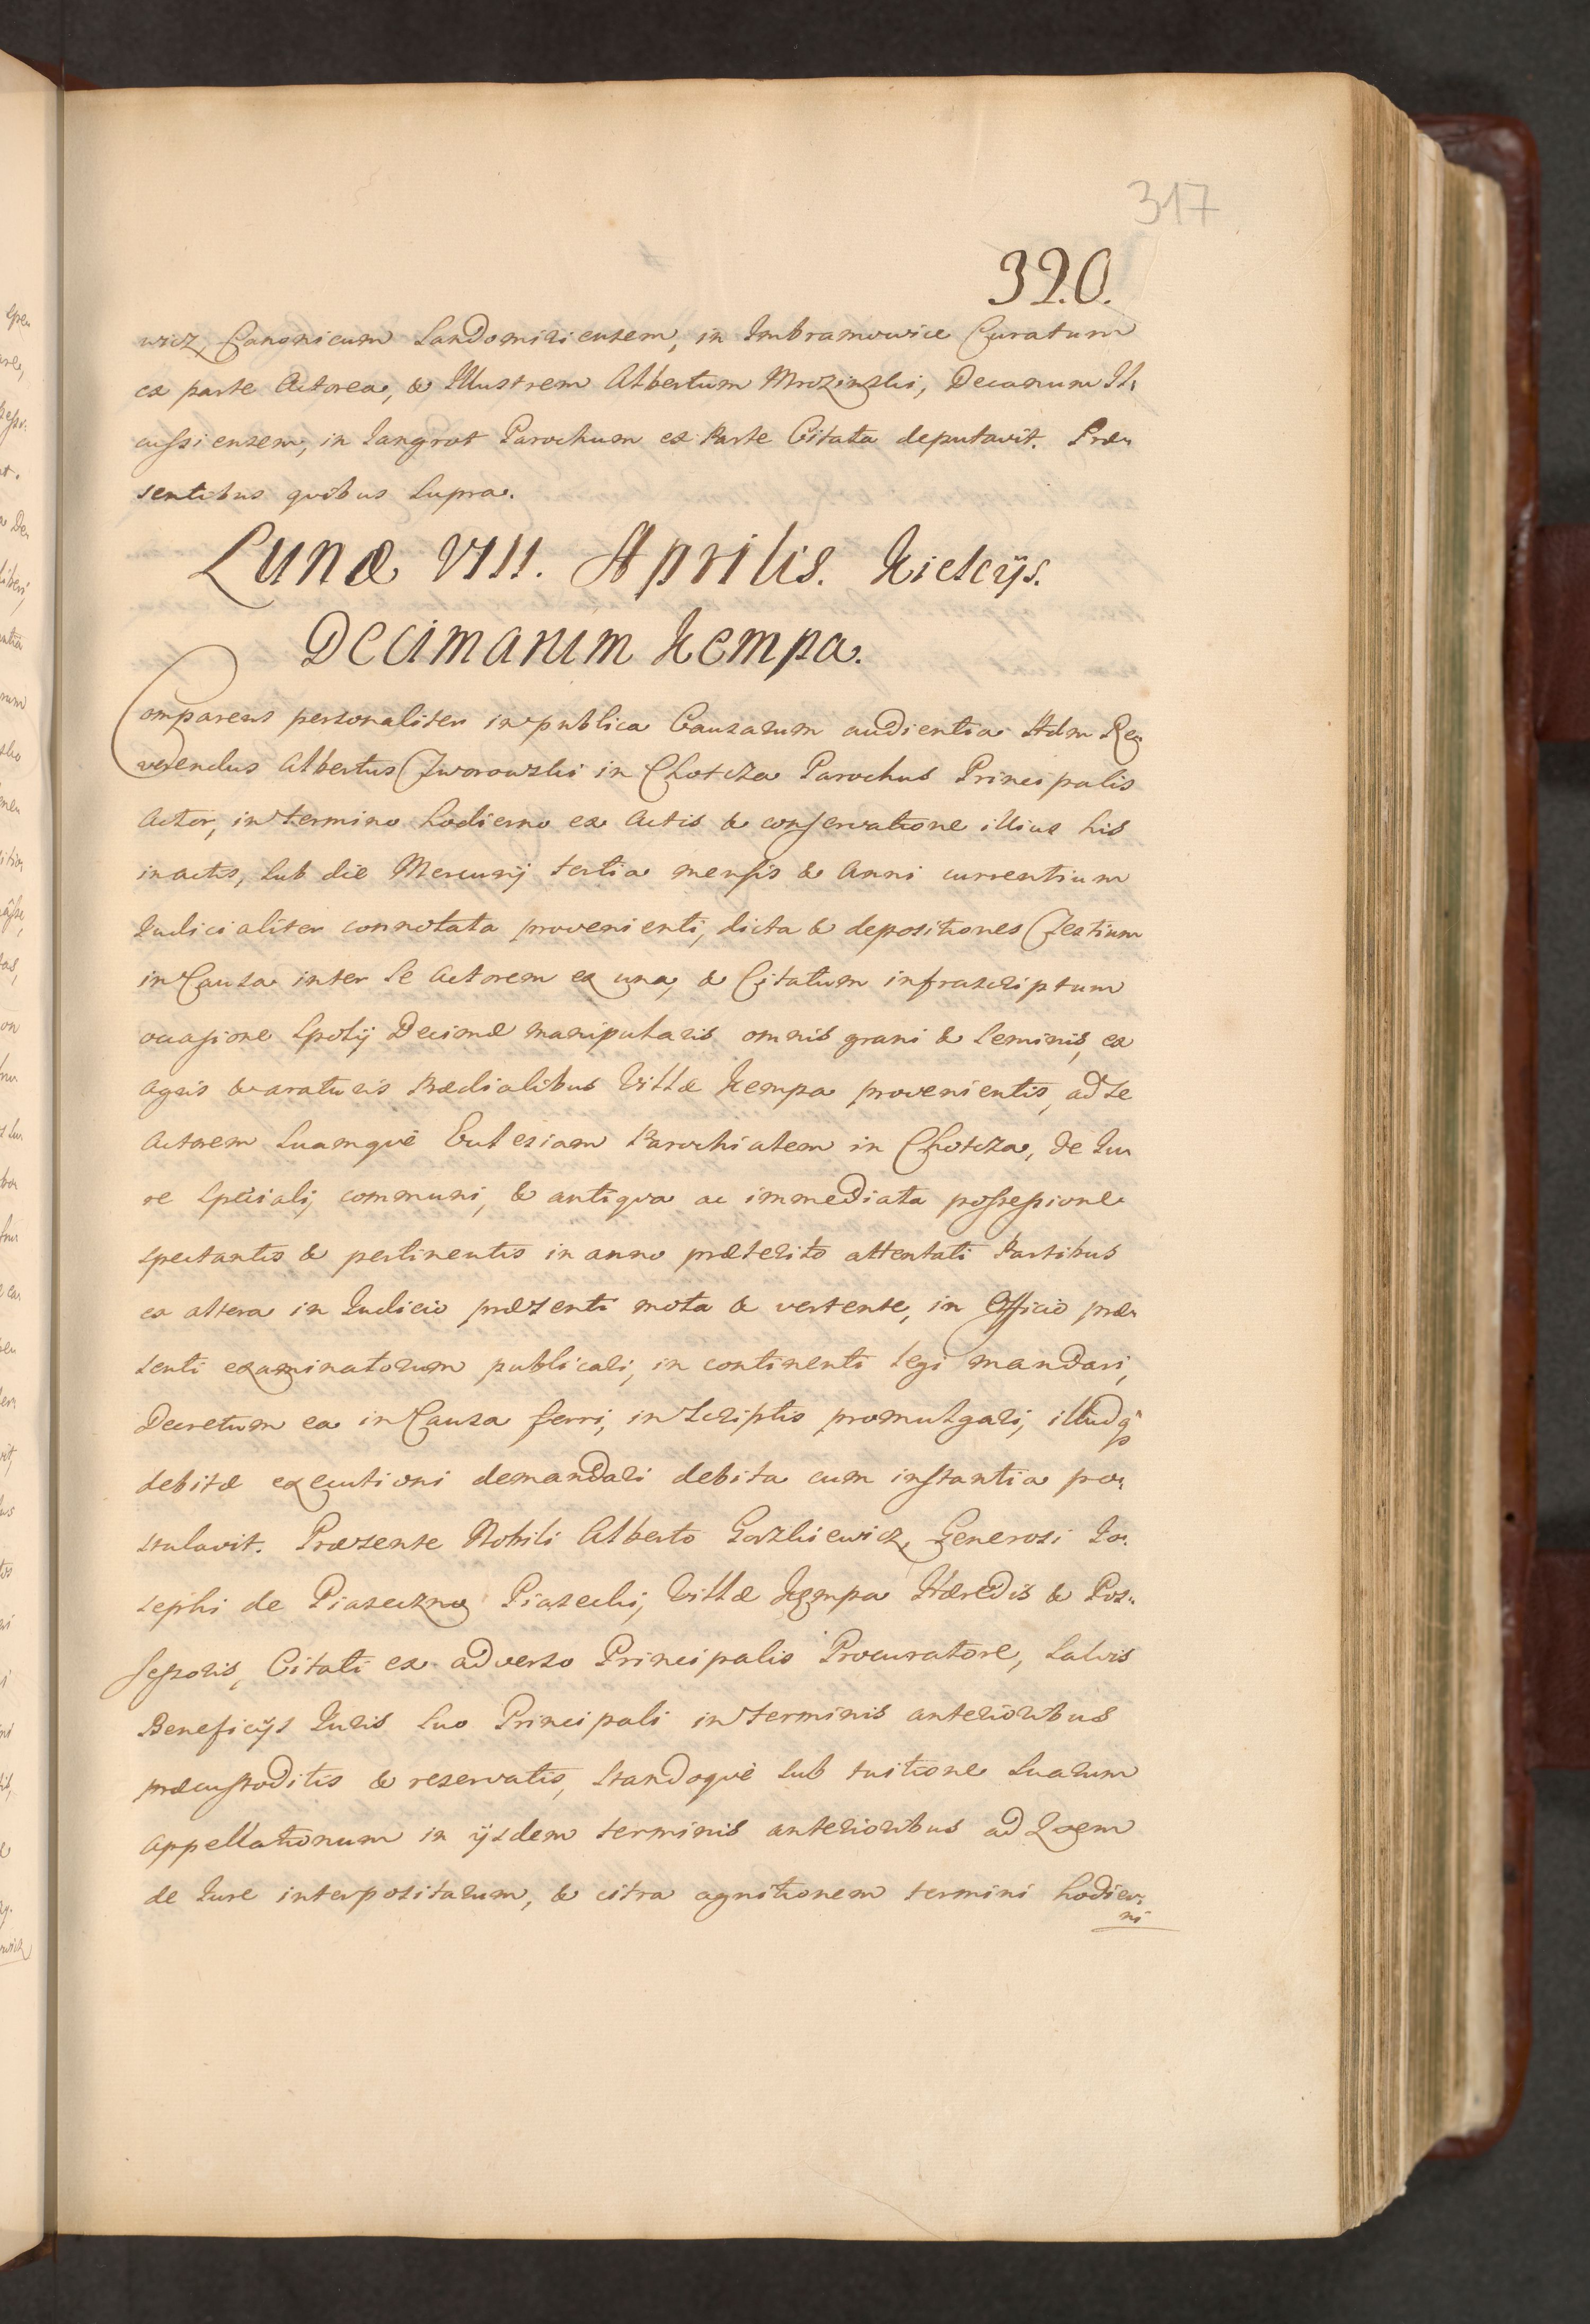 317
320.
wicz, Canonicum Sandomiriensem, in Imbramowice Curatum
ex parte Actorea, & Illustrem Albertum Mrozinski, Decanum Il,
cussiensem, in Jangrot Parochum ex Parte Citata deputavit. Præ,
sentibus quibus supra.
Lunæ VIII. Aprilis. Kielcijs.
Decimarum Kempa.
Comparens personaliter in publica Causarum audientia Adm Re,
verendus Albertus Jworowski in Chotcza Parochus Principalis
Actor, in termino hodierno ex Actis & conservatione illius his
in actis, sub die Mercurij tertia mensis & Anni currentium
Judicialiter connotata provenienti, dicta & depositiones Testium
in Causa inter se Actorem ex una, & Citatum infrascriptum
occasione spolij Decimæ manipularis omnis grani & seminis, ex
agris & araturis Prædialibus Villæ Kempa provenientis, ad se
Actorem suamquè Ecclesiam Parochialem in Chotcza, de Ju,
re speciali, communi, & antiqua ac immediata possessione
spectantis & pertinentis in anno præterito attentati Partibus
ex altera in Judicio præsenti mota & vertente, in Officio præ,
senti examinatorum publicari, in continenti legi mandari,
Decretum ea in Causa ferri, in scriptis promulgari, illudq
debitæ executioni demandari debita cum instantia po,
stulavit. Præsente Nobili Alberto Gorzkiewicz, Generosi Jo,
sephi de Piaseczno Piasecki, Villæ Kempa Hæredis & Pos,
sessoris, Citati ex adverso Principalis Procuratore, salvis
Beneficijs Juris suo Principali in terminis anterioribus
præcustoditis & reservatis, standoquè sub tuitione suarum
appellationum in ijsdem terminis anterioribus ad
de Jure interpositarum, & citra agnitionem termini hodier,
ni